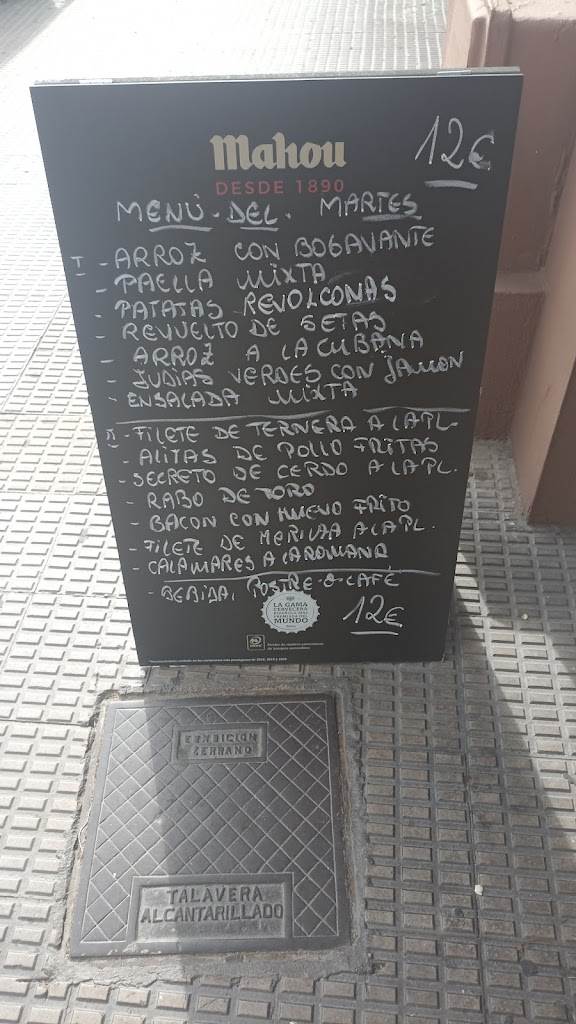 Mahou
DESDE 1890
12€
MENÚ DEL MARTES
I - ARROZ CON BOGAVANTE
- PAELLA MIXTA
- PATATAS REVOLCONAS
- REVUELTO DE SETAS
- ARROZ A LA CUBANA
- JUDIAS VERDES CON JAMON
- ENSALADA MIXTA
II - FILETE DE TERNERA A LA PL.
- ALITAS DE POLLO FRITAS
- SECRETO DE CERDO A LA PL.
- RABO DE TORO
- BACON CON HUEVO FRITO
- FILETE DE MERLUZA A LA PL.
- CALAMARES A LA ROMANA
- BEBIDA, POSTRE O CAFÉ
12€
LA GAMA
CERVECERA
ESPAÑOLA MÁS
PREMIADA DEL
MUNDO
FUNDICION
SERRANO
TALAVERA
ALCANTARILLADO